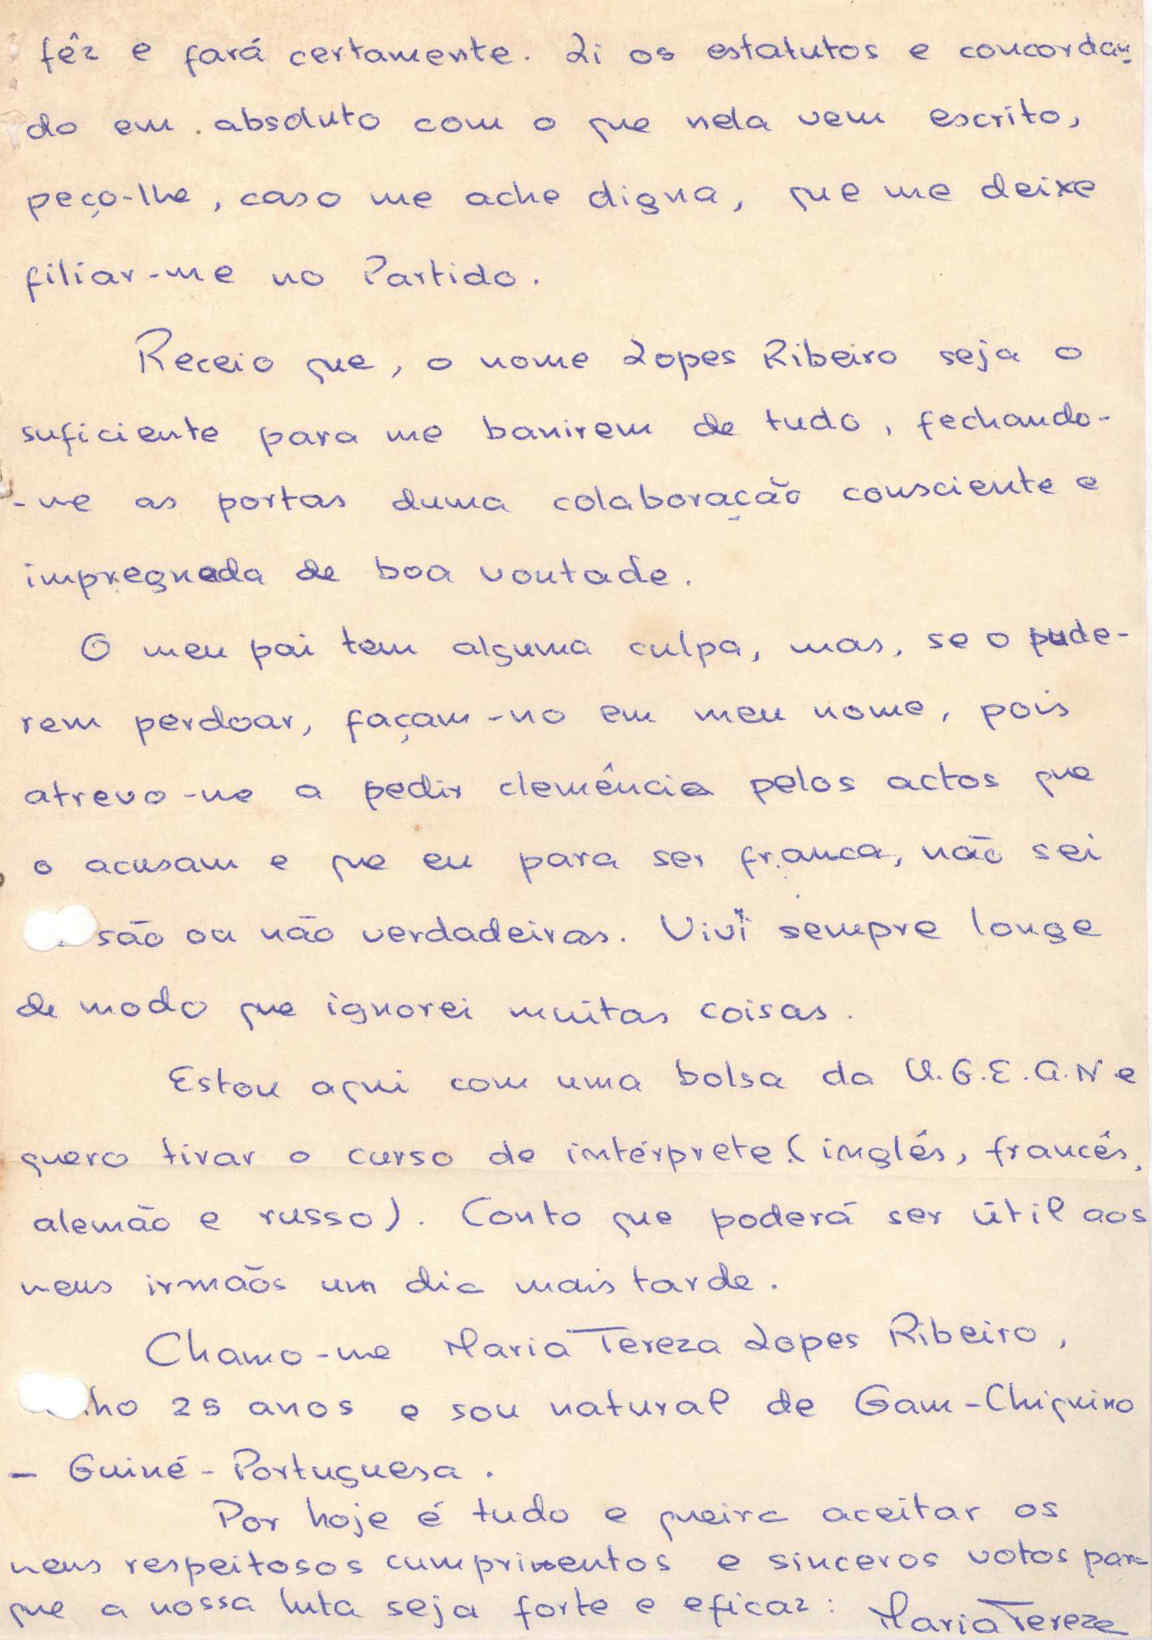 fêz e fará certamente. Li os estatutos e concordan-
do em absoluto com o que nela vem escrito,
peço-lhe, caso me ache digna, que me deixe
filiar-me no Partido.
Receio que, o nome Lopes Ribeiro seja o
suficiente para me banirem de tudo, fechando-
-me as portas duma colaboração consciente e
impregnada de boa vontade.
O meu pai tem alguma culpa, mas, se o pude-
rem perdoar, façam-no em meu nome, pois
atrevo-me a pedir clemência pelos actos que
o acusam e que eu para ser franca, não sei
são ou não verdadeiras. Vivi sempre longe
de modo que ignorei muitas coisas.
Estou aqui com uma bolsa da U.G.E.A.N e
quero tirar o curso de intérprete (inglés, francês,
alemão e russo). Conto que poderá ser útil aos
meus irmãos um dia mais tarde.
Chamo-me Maria Tereza Lopes Ribeiro,
nho 25 anos e sou natural de Gam-Chiquino
- Guiné-Portuguesa.
Por hoje é tudo e queira aceitar os
meus respeitosos cumprimentos e sinceros votos para
que a nossa luta seja forte e eficaz: Maria Tereza